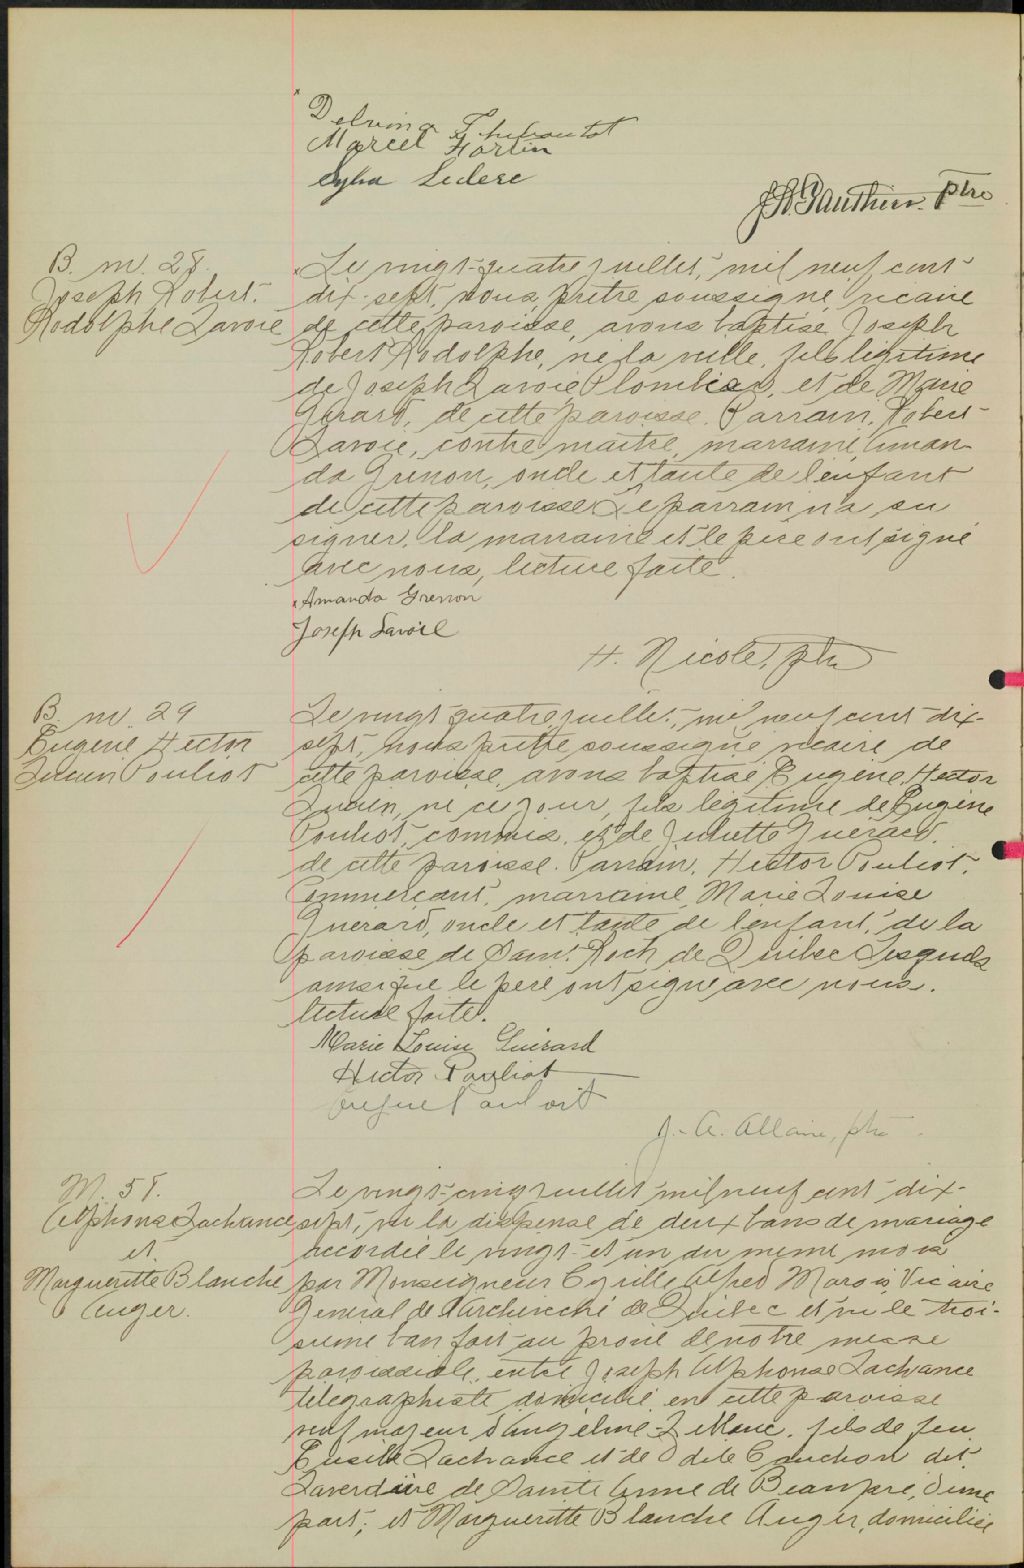 Delvina Thiboutot
Marcel Fortin
Sylva Leclerc
J. Gauthier ptre
B. m. 28.
Joseph Robert.
Rodolphe Lavoie
Le vingt-quatre juillet, mil neuf cent
dix-sept, nous, prêtre soussigné, vicaire
de cette paroisse, avons baptisé Joseph
Robert Rodolphe, né la veille, fils légitime
de Joseph Lavoie, Plombier, et de Marie
Girard, de cette paroisse. Parrain, Robert
Lavoie, contre maître, marraine, Aman-
da Grenon, oncle et tante de l'enfant
de cette paroisse. Le parrain n'a su
signer, la marraine et le père ont signé
avec nous, lecture faite.
Amanda Grenon
Joseph Lavoie
H. Nicole, ptre
B. m. 29
Eugène Hector
Lucien Pouliot
Le vingt-quatre juillet, mil neuf cent dix-
sept, nous prêtre soussigné vicaire de
cette paroisse, avons baptisé Eugène Hector
Lucien, né ce jour, fils légitime de Eugène
Pouliot, commis, et de Juliette Guérard,
de cette paroisse. Parrain, Hector Pouliot,
Commerçant, marraine, Marie Louise
Guerard, oncle et tante de l'enfant, de la
paroisse de Saint Roch de Québec Lesquels
ainsi que le père ont signé avec nous.
lecture faite.
Marie Louise Guérard
Hector Pouliot
J.-A. Allaire, ptre
M. 58.
Alphonse Lachance
et
Margueritte Blanche
Auger.
Le vingt-cinq juillet mil neuf cent dix-
sept, vu la dispense de deux bans de mariage
accordée le vingt-et un du même mois
par Monseigneur Cyrille Alfred Marois, Vicaire
Général de l'Archevêché de Québec et vu le troi-
sième ban fait au prône de notre messe
paroissiale, entre Joseph Alphonse Lachance
télégraphiste domicilié en cette paroisse
veuf majeur d'Angéline LeBlanc, fils de feu
Lachance et de Odile Cauchon dit
Laverdière de Sainte Anne de Beaupré, d'une
part; et Margueritte Blanche Auger, domiciliée